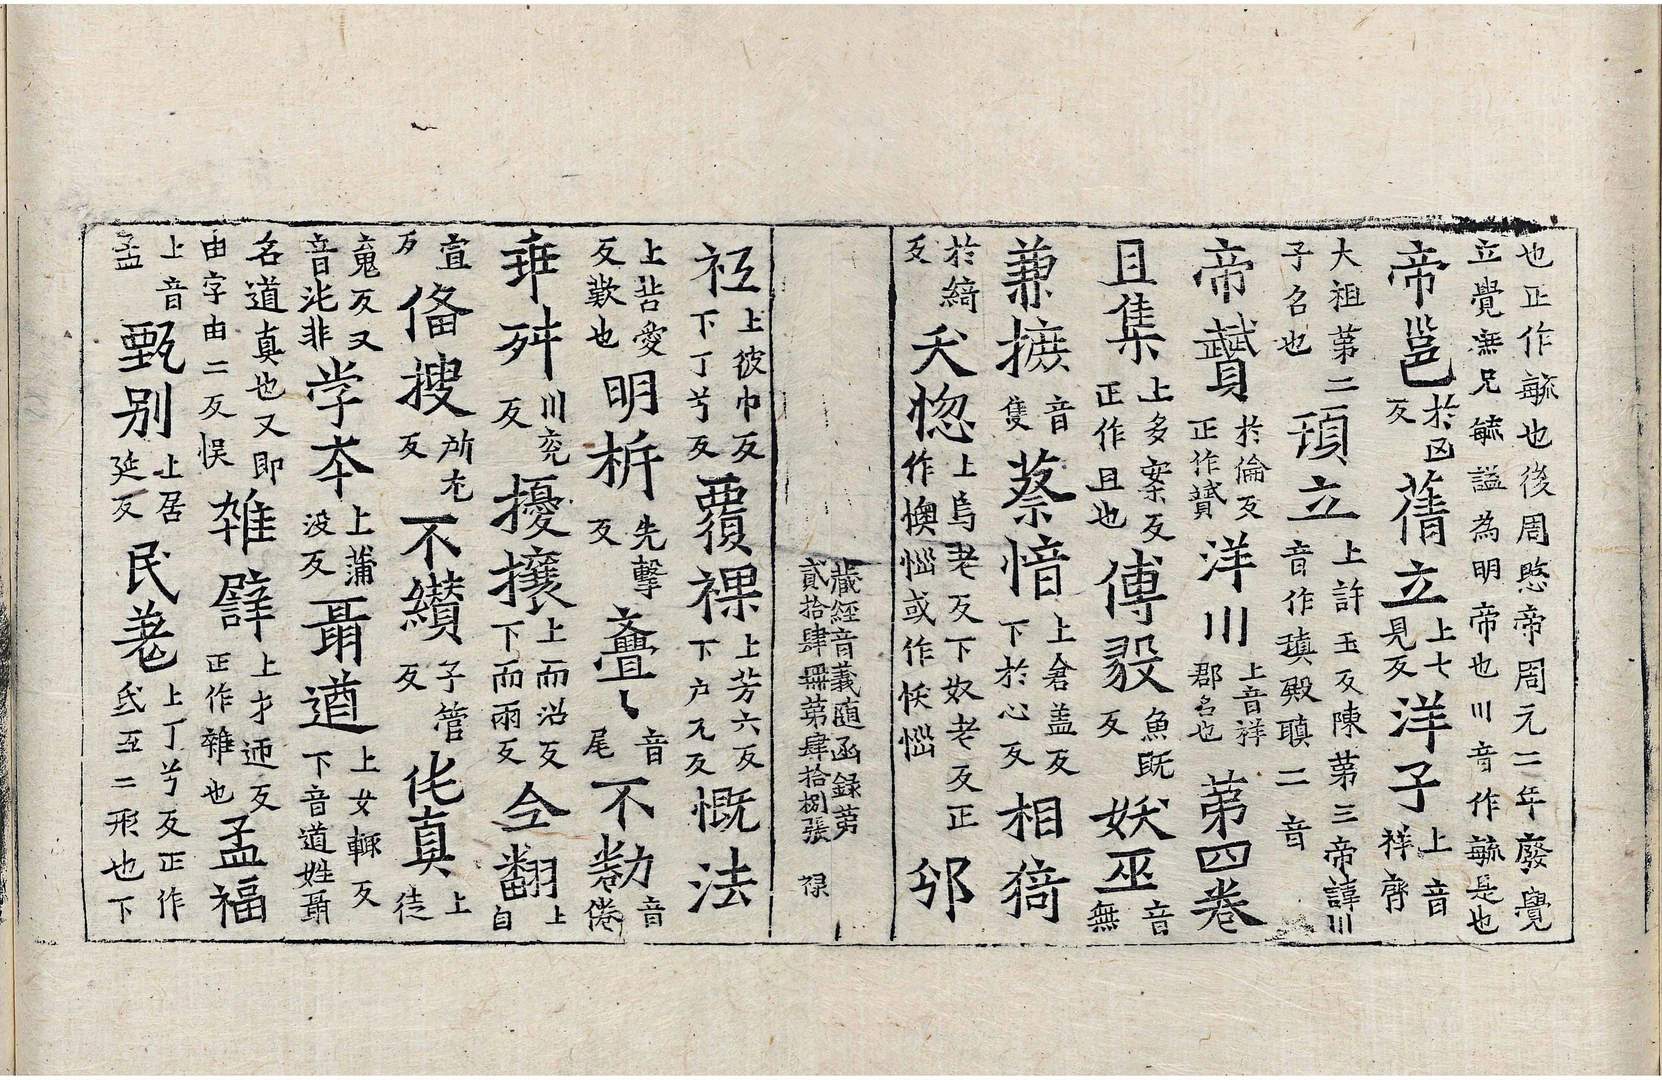 也正作毓也後周愍帝周元二年廢覺
立覺無兄毓謚為明帝也川音作毓是也
帝邕於凶反蒨立上七見反洋子上音祥齊
大祖第二
子名也
頊立上許玉反陳第三帝諱川音作瑱殿瑱二音
帝贇於倫反正作贇洋川上音祥郡名也第四卷
且集上多案反正作旦也傅毅魚既反妖巫音無
兼摭音隻蔡愔上倉盖反下於心反相猗
於綺反夭惚上烏老反下奴老反正作懊惱或作㤇惱邠
藏經音義隨函錄第
貳拾肆冊第肆拾捌張 禄
上彼巾反下丁兮反覆裸上芳六反下户瓦反慨法
上苦愛反歎也明㭊先擊反亹〻音尾不勌音倦
乖舛川兖反擾攘上而沼反下而雨反仝翻上自
宣反俻搜所尤反不纘子管反佗真上徒
嵬反又音沱非学夲上蒲没反聶道上女輒反下音道姓聶
名道真也又即由字由二反悮雜辥上才迊反正作雜也孟福
上音孟甄别上居延反民茖上丁兮反正作氐互二形也下